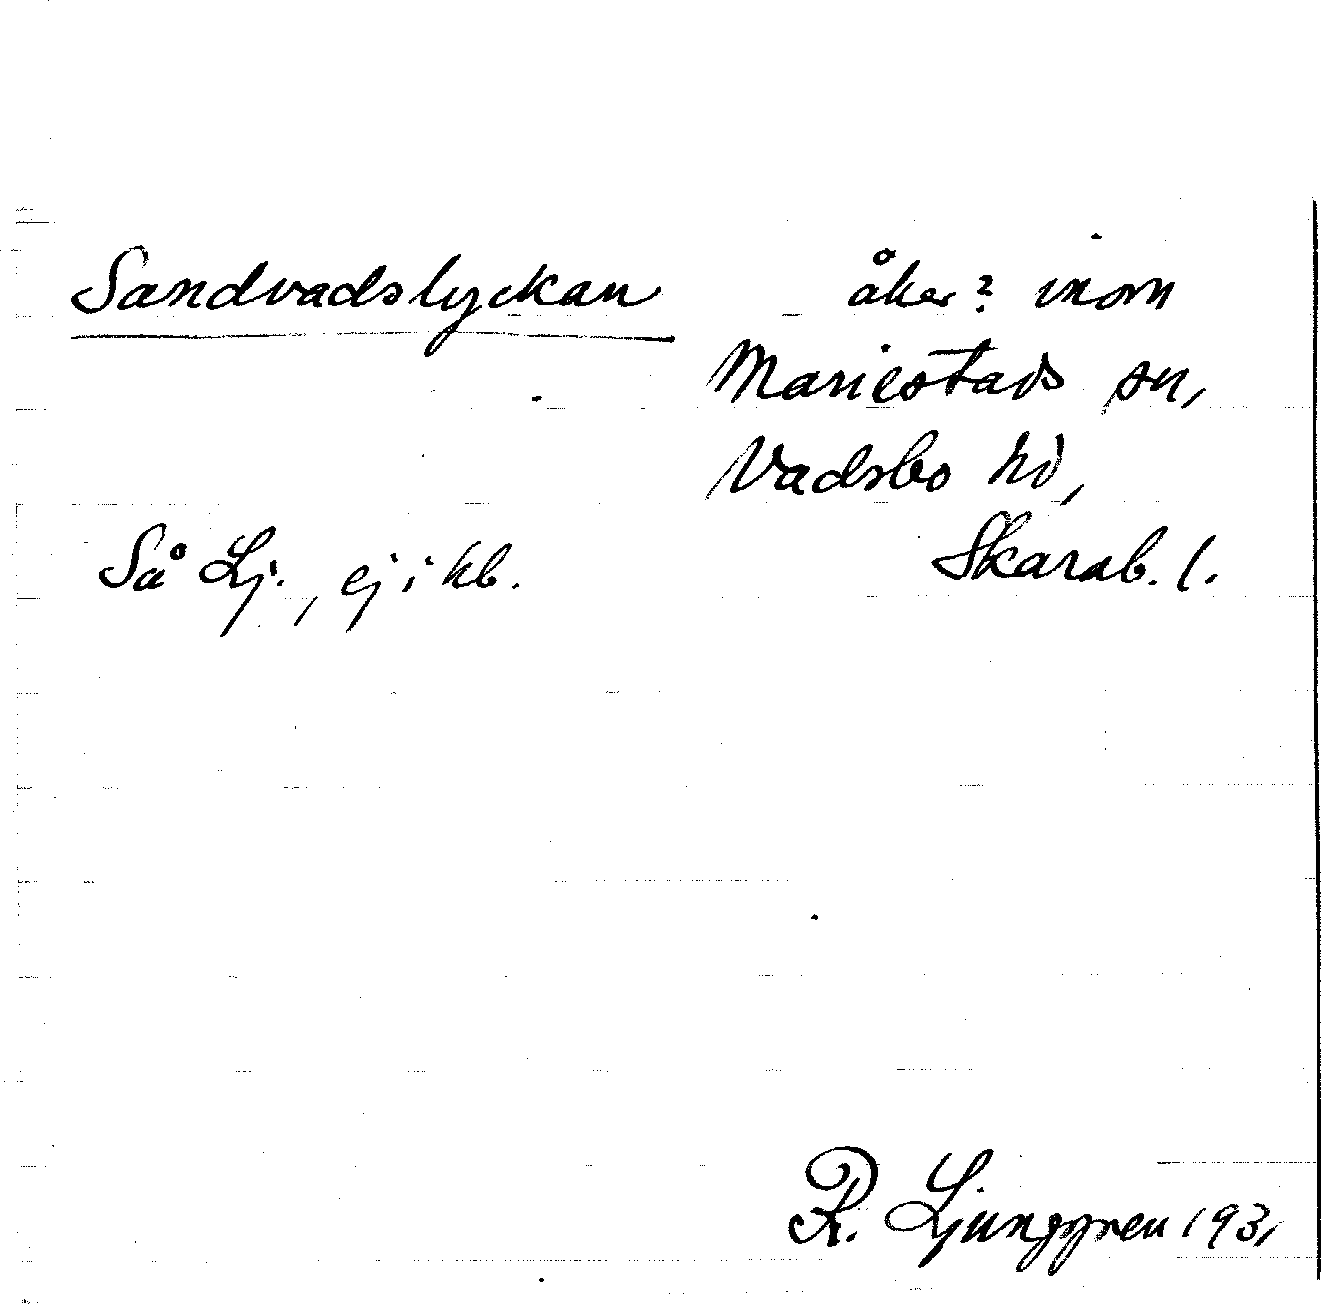 Sandvadslyckan åker? inom
Mariestads sn,
Vadsbo hd,
Skarab. l.
Så Lj., ej i kb.
R. Ljunggren 1931